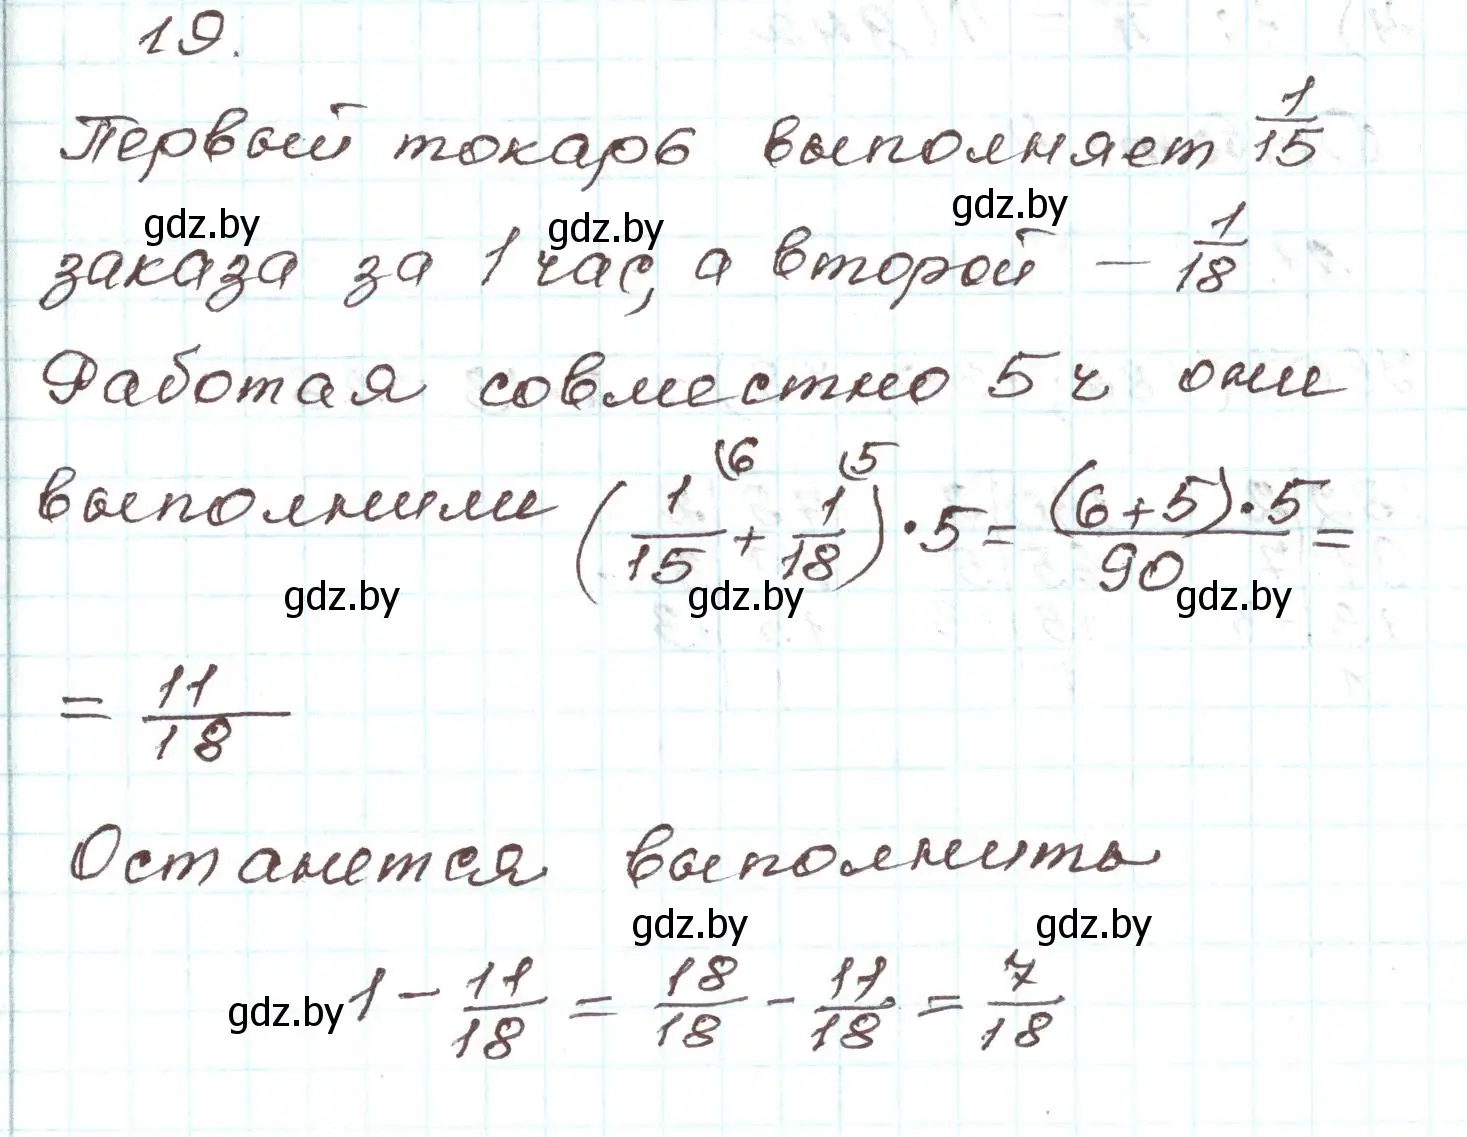 19.
Первый токарь выполняет 1/15
gdz.by gdz.by gdz.by
заказа за 1 час, а второй – 1/18
Работая совместно 5 ч они
выполнили (1/15 (6 + 1/18 (5) · 5 = (6+5)·5/90 =
gdz.by gdz.by gdz.by
= 11/18
Останется выполнить
gdz.by gdz.by
gdz.by 1 – 11/18 = 18/18 - 11/18 = 7/18